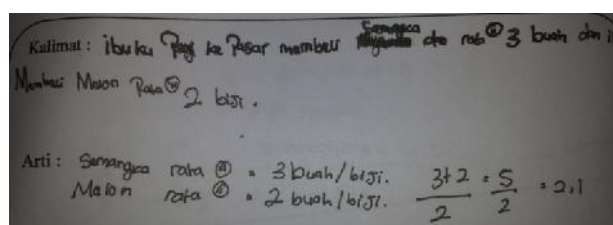 Kalimat : ibuku Pergi ke Pasar membeli Semangka rata² 3 buah dan i
Membeli Melon Rata² 2 biji.
Arti : Semangka rata² = 3 buah/biji.
Melon rata² = 2 buah/biji. 3+2/2 = 5/2 = 2,1